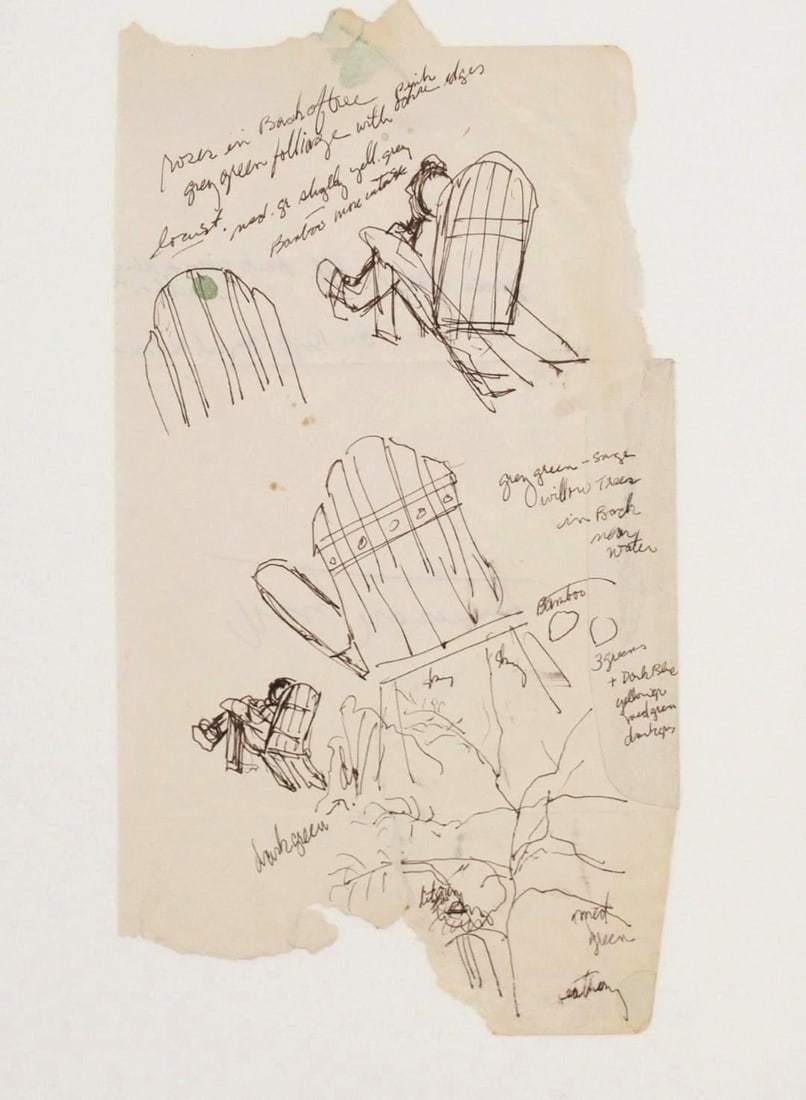 roses in Back of tree Pink
grey green folliage with some edges
locust. med. gr slightly yell. grey
Bamboo more intense
grey green - sage
willow Trees
in Back
near
water
Bamboo
3 greens
+ Dark Blue
yellower
med green
dark
sky
dark green
med
green